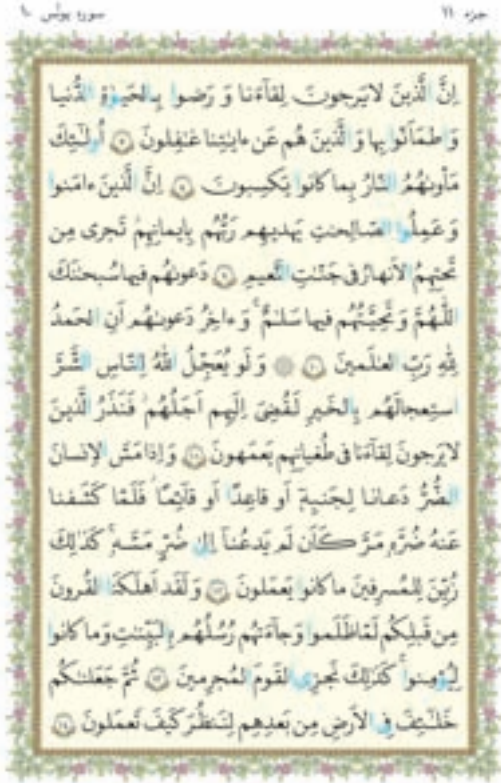 جزء ۱۱
سورة يونس ۱۰
إِنَّ الَّذينَ لايَرجونَ لِقآءَنا وَ رَضوا بِالحَيوٰةِ الدُّنيا
وَ اطمَأَنّوا بِها وَ الَّذينَ هُم عَن ءايٰتِنا غٰفِلونَ ۷ أُولٰئِكَ
مَأوىٰهُمُ النّارُ بِما كانوا يَكسِبونَ ۸ إِنَّ الَّذينَ ءامَنوا
وَ عَمِلُوا الصّالِحٰتِ يَهديهِم رَبُّهُم بِإيمانِهِم تَجرى مِن
تَحتِهِمُ الأَنهارُ فى جَنّٰتِ النَّعيمِ ۹ دَعوىٰهُم فيها سُبحٰنَكَ
اللّٰهُمَّ وَ تَحِيَّتُهُم فيها سَلٰمٌ وَ ءاخِرُ دَعوىٰهُم أَنِ الحَمدُ
لِلّٰهِ رَبِّ العٰلَمينَ ۱۰ وَ لَو يُعَجِّلُ اللّٰهُ لِلنّاسِ الشَّرَّ
استِعجالَهُم بِالخَيرِ لَقُضِىَ إِلَيهِم أَجَلُهُم فَنَذَرُ الَّذينَ
لايَرجونَ لِقآءَنا فى طُغيانِهِم يَعمَهونَ ۱۱ وَ إِذا مَسَّ الإِنسانَ
الضُّرُّ دَعانا لِجَنبِهِ أَو قاعِدًا أَو قآئِمًا فَلَمّا كَشَفنا
عَنهُ ضُرَّهُ مَرَّ كَأَن لَم يَدعُنآ إِلىٰ ضُرٍّ مَسَّهُ كَذٰلِكَ
زُيِّنَ لِلمُسرِفينَ ما كانوا يَعمَلونَ ۱۲ وَ لَقَد أَهلَكنَا القُرونَ
مِن قَبلِكُم لَمّا ظَلَموا وَ جآءَتهُم رُسُلُهُم بِالبَيِّنٰتِ وَ ما كانوا
لِيُؤمِنوا كَذٰلِكَ نَجزِى القَومَ المُجرِمينَ ۱۳ ثُمَّ جَعَلنٰكُم
خَلٰئِفَ فِى الأَرضِ مِن بَعدِهِم لِنَنظُرَ كَيفَ تَعمَلونَ ۱۴